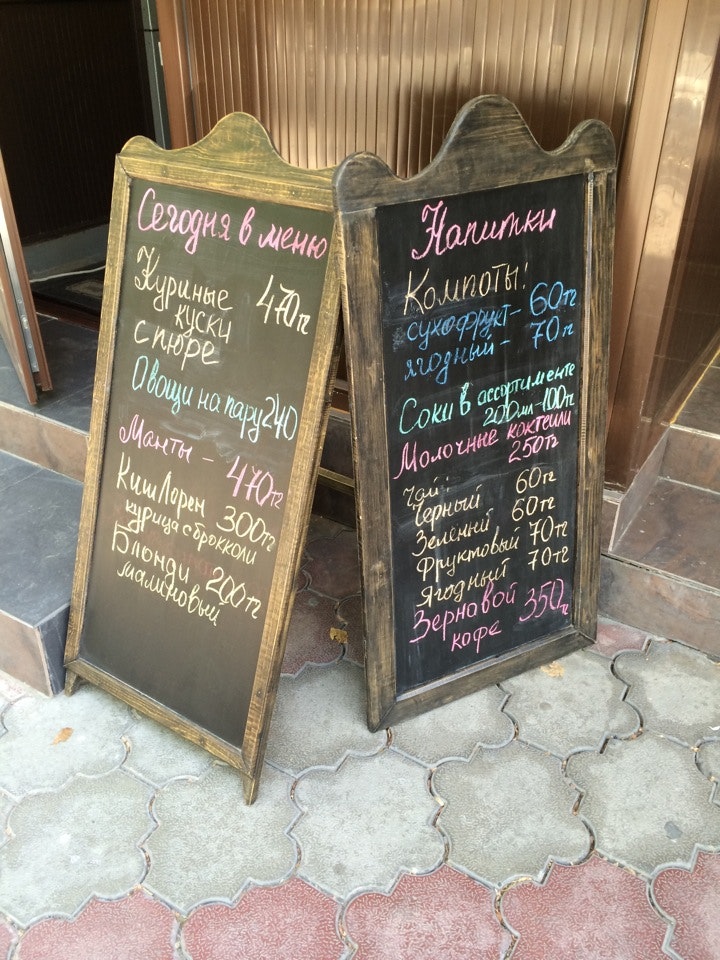 Сегодня в меню
Куриные 470тг
куски
с пюре
Овощи на пару 240
Манты - 470тг
Киш Лорен 300тг
курица с брокколи
Блонди 200тг
малиновый
Напитки
Компоты!
сухофрукт - 60тг
ягодный - 70тг
Соки в ассортименте
200мл-100тг
Молочные коктейли
250тг
Чай!
Черный 60тг
Зеленый 60тг
Фруктовый 70тг
Ягодный 70тг
Зерновой 350тг
кофе